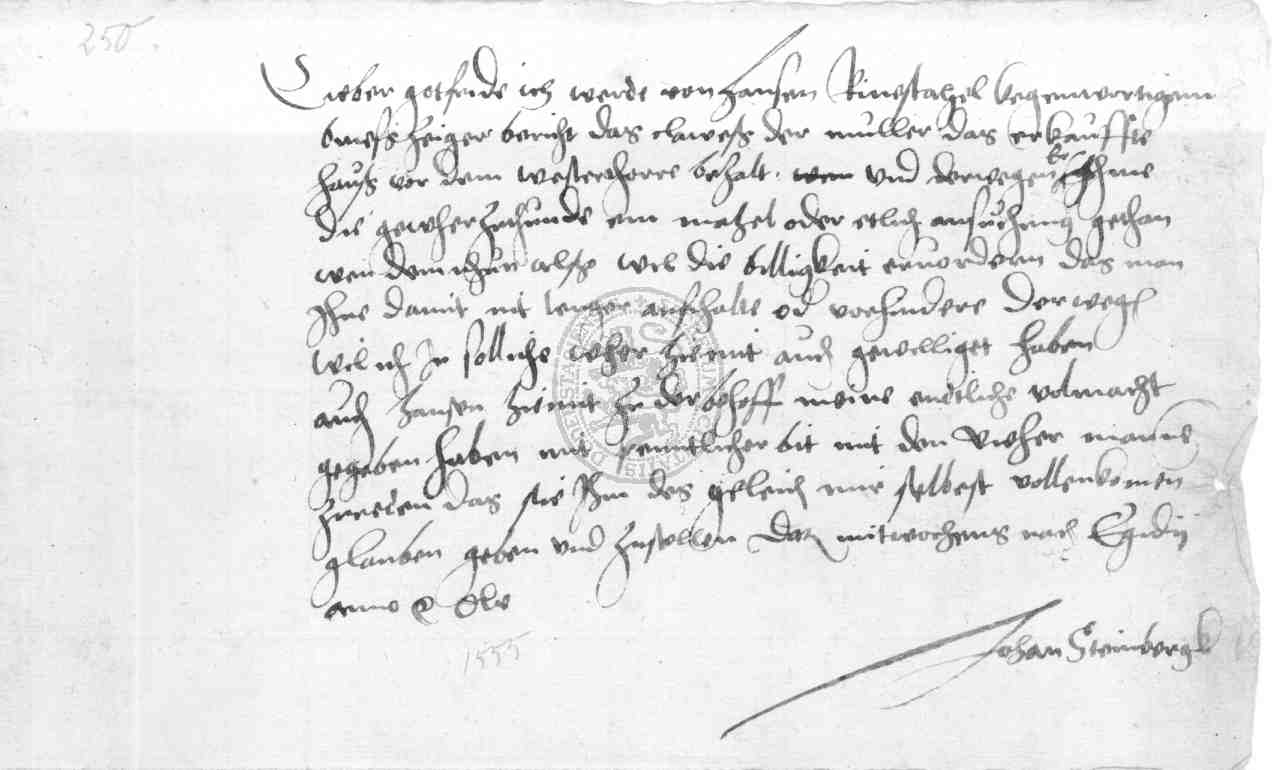 250.
Lieber gotfride ich werde von Hansen Kinestahel kegenwortigem
brieffs Zeiger bericht das claweß der muller das erkauffte
hauß vor dem westerthorre behalt. und derwegen ehr Ihme
die gewher Zuthunde ein mahel oder etlich ansuchung gethan
wen dem nhun alß wil die billigkeit ervordern das man
Ihne damit nit lenger auffhalte od vorhindere Derweg
wil ich In solliche wher hiemit auch gewilliget haben
auch Hansen hiemit Zu der behoff meine entliche volmacht
gegeben haben mit freuntlicher bit mit den wher manne
Zureden das sie Ihm des geleich mir selbest vollenkomen
glauben geben und Zustellen Dat mitwochens nach Egidij
anno &c lv
1555
Johan Steinbergk